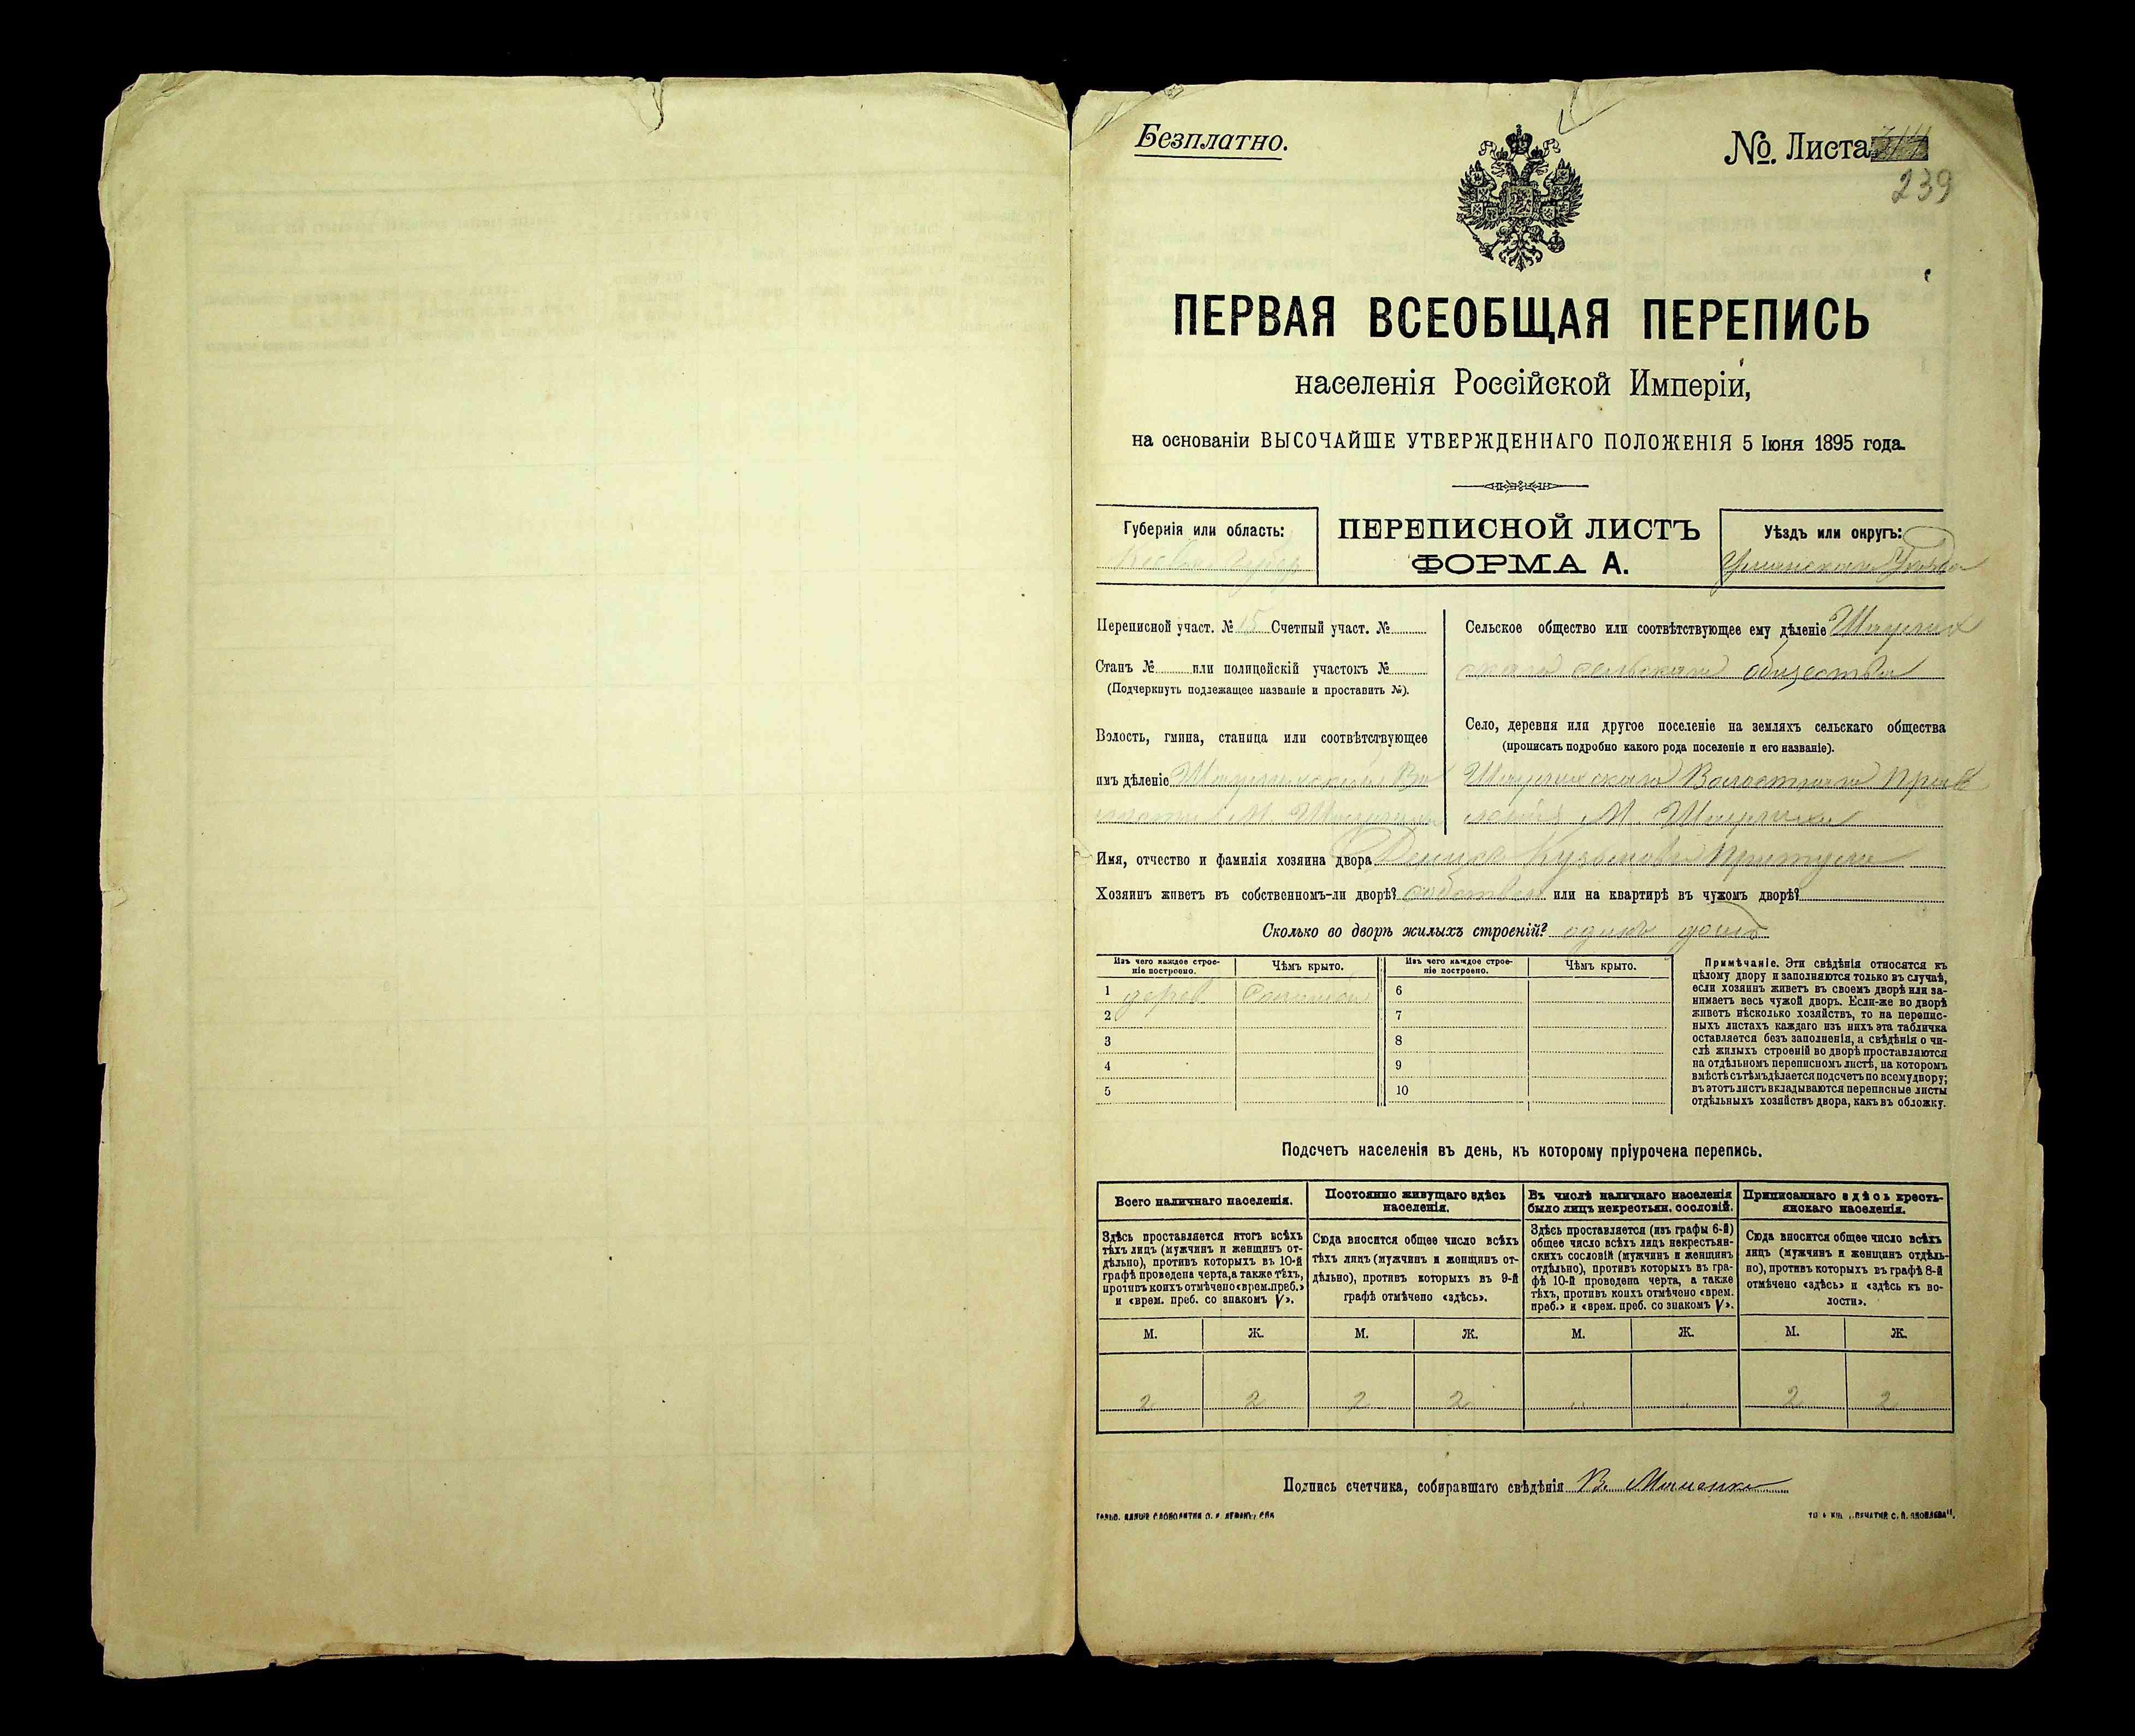 Безплатно.
№ Листа
239
ПЕРВАЯ ВСЕОБЩАЯ ПЕРЕПИСЬ
населенія Россійской Имперіи,
на основаніи ВЫСОЧАЙШЕ УТВЕРЖДЕННАГО ПОЛОЖЕНІЯ 5 Іюня 1895 года.
Губернія или область:
ПЕРЕПИСНОЙ ЛИСТЪ
ФОРМА А.
Уѣздъ или округъ:
Уманскаго Уѣзда
Переписной участ. № 15 Счетный участ. №
Станъ № или полицейскій участокъ №
(Подчеркнуть подлежащее названіе и проставить №).
Волость, гмина, станица или соотвѣтствующее
имъ дѣленіе
Сельское общество или соотвѣтствующее ему дѣленіе
скаго сельскаго общества
Село, деревня или другое поселеніе на земляхъ сельскаго общества
(прописать подробно какого рода поселеніе и его названіе).
Имя, отчество и фамилія хозяина двора
Хозяинъ живетъ въ собственномъ-ли дворѣ? или на квартирѣ въ чужомъ дворѣ?
Сколько во дворѣ жилыхъ строеній? одинъ домъ
Изъ чего каждое строе-
ніе построено.
Чѣмъ крыто.
Изъ чего каждое строе-
ніе построено.
Чѣмъ крыто.
1 дерев
2
3
4
5
6
7
8
9
10
Примѣчаніе. Эти свѣдѣнія относятся къ
цѣлому двору и заполняются только въ случаѣ,
если хозяинъ живетъ въ своемъ дворѣ или за-
нимаетъ весь чужой дворъ. Если-же во дворѣ
живетъ нѣсколько хозяйствъ, то на перепис-
ныхъ листахъ каждаго изъ нихъ эта табличка
оставляется безъ заполненія, а свѣдѣнія о чи-
слѣ жилыхъ строеній во дворѣ проставляются
на отдѣльномъ переписномъ листѣ, на которомъ
вмѣстѣ съ тѣмъ дѣлается подсчетъ по всему двору;
въ этотъ листъ вкладываются переписные листы
отдѣльныхъ хозяйствъ двора, какъ въ обложку.
Подсчетъ населенія въ день, къ которому пріурочена перепись.
Всего наличнаго населенія.
Здѣсь проставляется итогъ всѣхъ
тѣхъ лицъ (мужчинъ и женщинъ от-
дѣльно), противъ которыхъ въ 10-й
графѣ проведена черта, а также тѣхъ,
противъ коихъ отмѣчено «врем. преб.»
и «врем. преб. со знакомъ V».
Постоянно живущаго здѣсь
населенія.
Сюда вносится общее число всѣхъ
тѣхъ лицъ (мужчинъ и женщинъ от-
дѣльно), противъ которыхъ въ 9-й
графѣ отмѣчено «здѣсь».
Въ числѣ наличнаго населенія
было лицъ некрестьян. сословій.
Здѣсь проставляется (изъ графы 6-й)
общее число всѣхъ лицъ некрестьян-
скихъ сословій (мужчинъ и женщинъ
отдѣльно), противъ которыхъ въ гра-
фѣ 10-й проведена черта, а также
тѣхъ, противъ коихъ отмѣчено «врем.
преб.» и «врем. преб. со знакомъ V».
Приписаннаго здѣсь кресть-
янскаго населенія.
Сюда вносится общее число всѣхъ
лицъ (мужчинъ и женщинъ отдѣль-
но), противъ которыхъ въ графѣ 8-й
отмѣчено «здѣсь» и «здѣсь къ во-
лости».
М. Ж. М. Ж. М. Ж. М. Ж.
2 2 2 2 „ „ 2 2
Подпись счетчика, собиравшаго свѣдѣнія В.